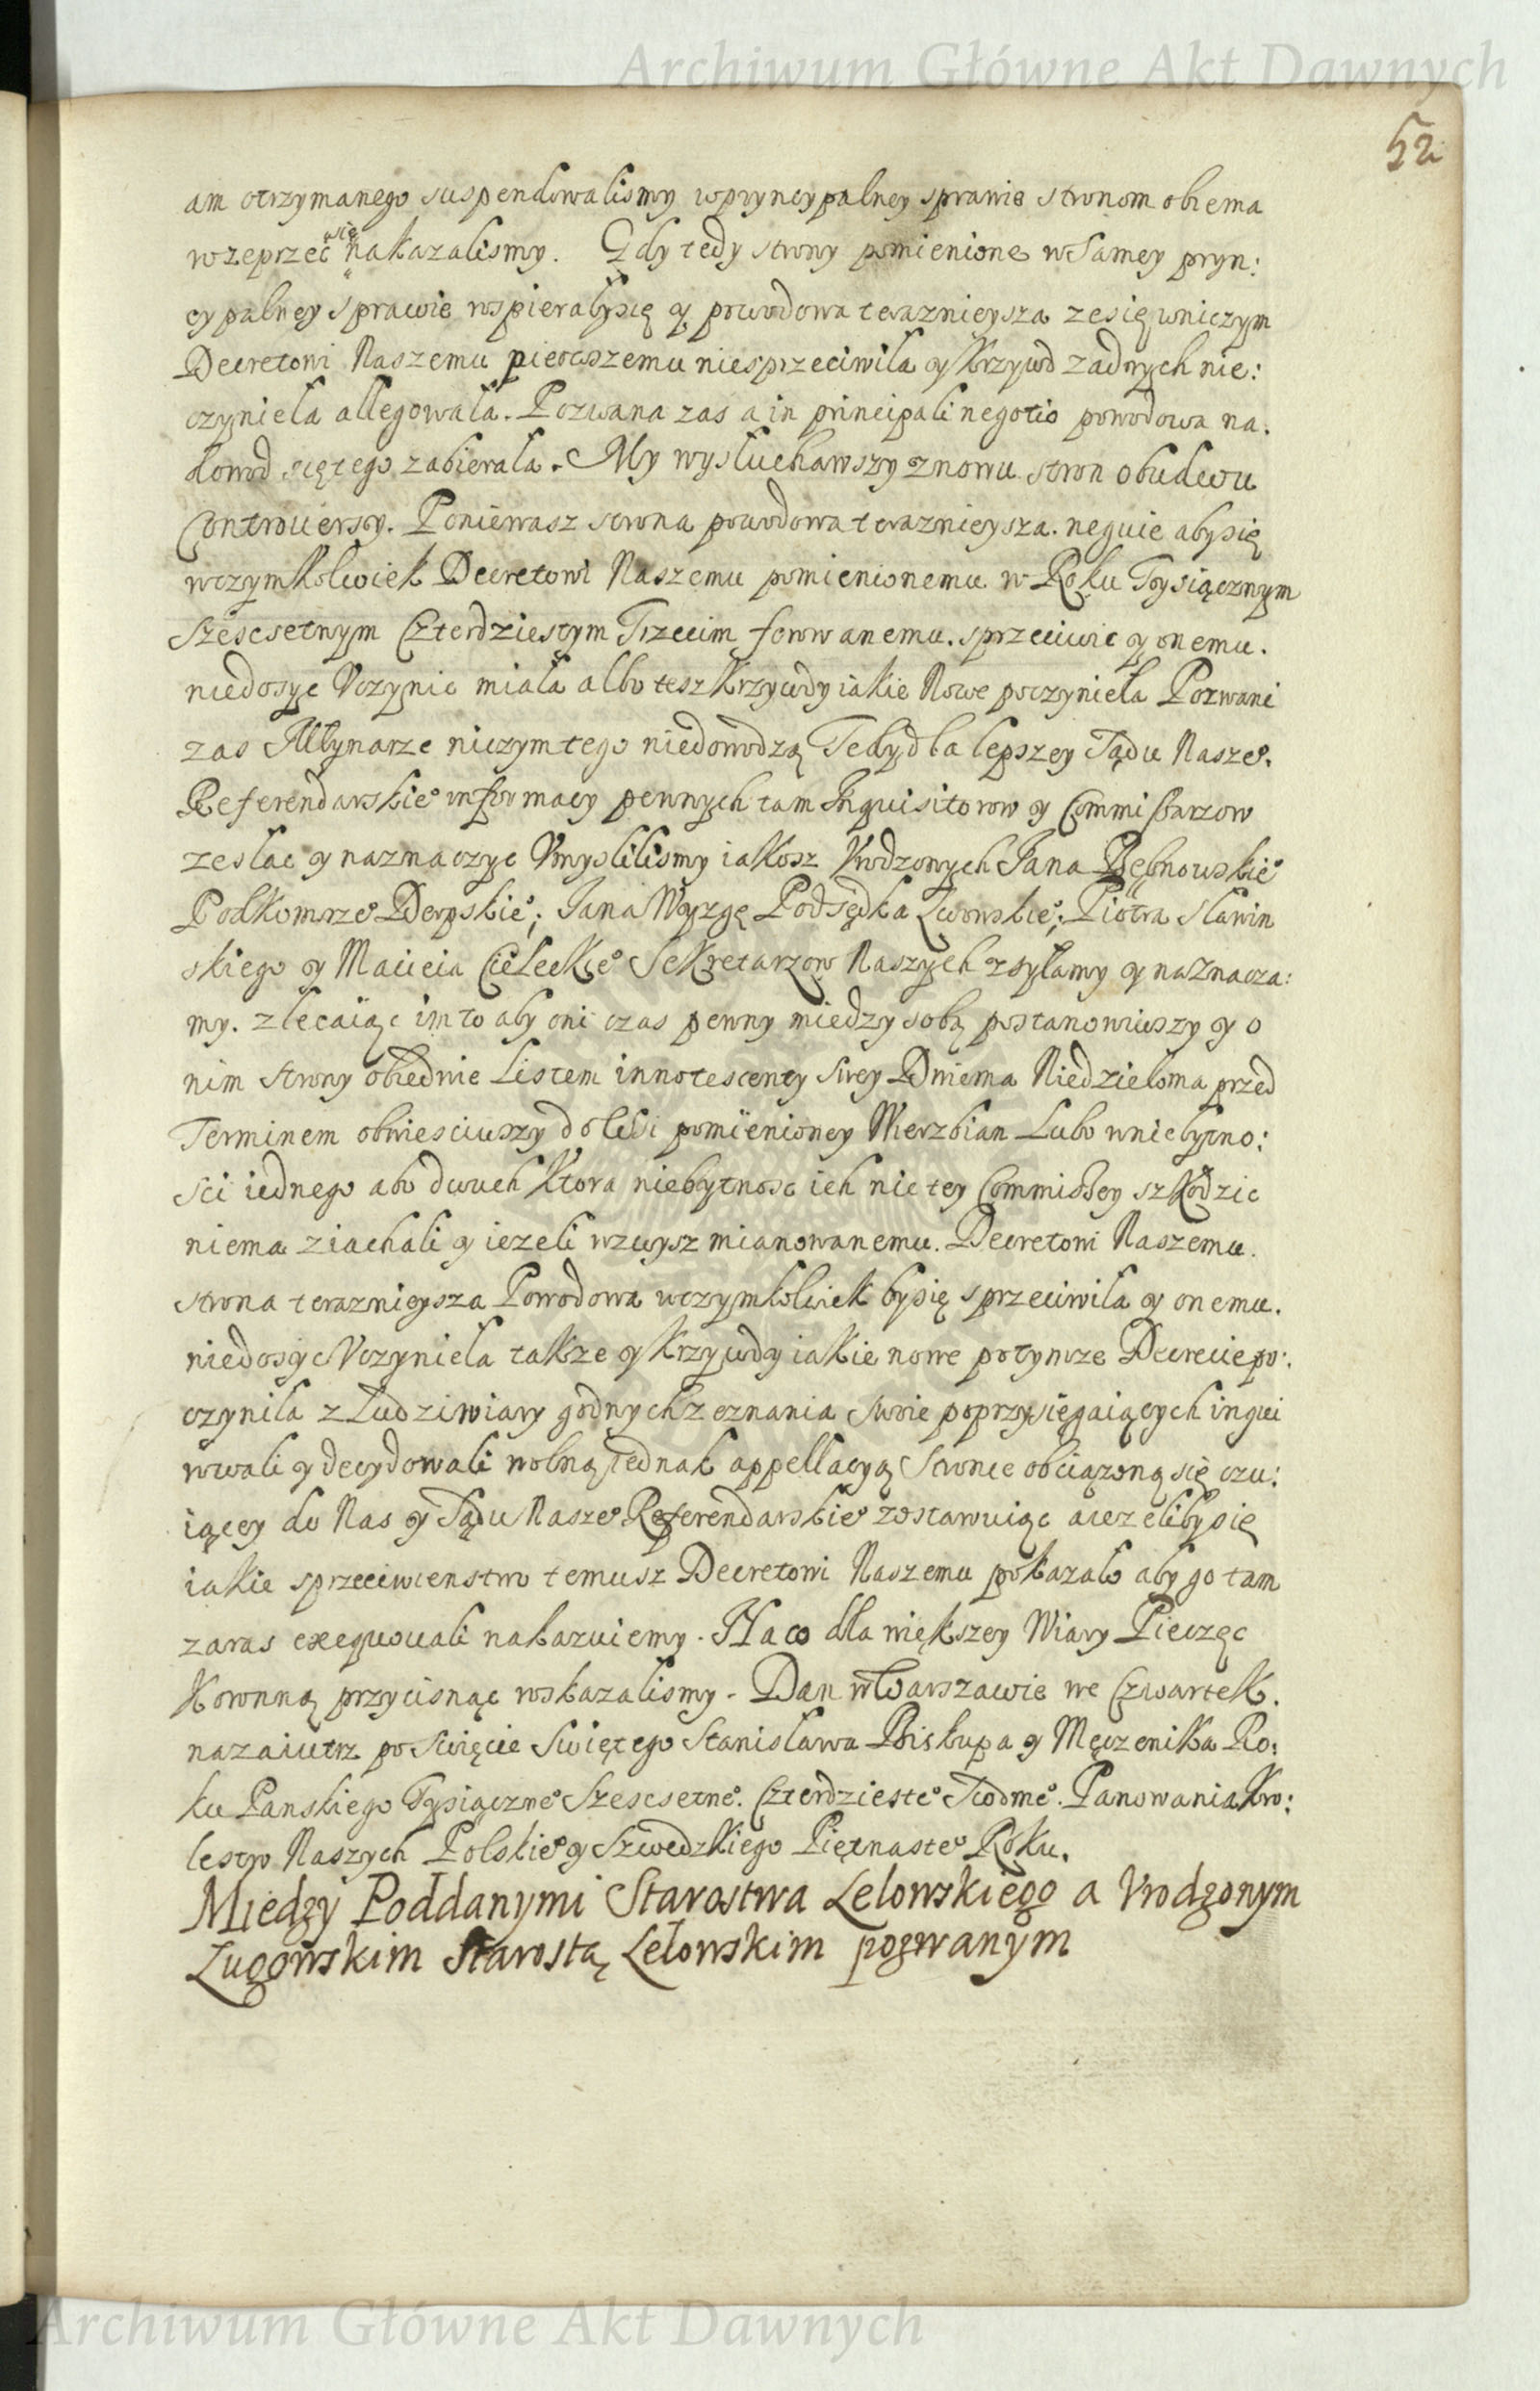 Archiwum Główne Akt Dawnych
52
am otrzymanego suspendowalismy wpryncypalney sprawie stronom obiema
wzeprzec się nakazalismy. Gdy tedy strony pomienione wSamey pryn:
cypalney sprawie wspieralysię y powodowa terazniejsza zesię wniczym
Decretowi Naszemu pierwszemu niesprzeciwiła y Krzywd zadnych nie:
czyniela allegowala. Pozwana zas a in principali negotio powodowa na.
dowod sięte go zabierala. My wysłuchawszy znowu stron obudwu
Controversy. Poniewasz strona powodowa terazniejsza. neguie abysię
wczymkolwiek Decretowi Naszemu pomienionemu w Roku Tysiącznym
Szescsetnym Czterdziestym Trzecim ferowanemu. sprzeciwic y onemu.
niedosyc Vczynic miała albo tesz Krzywdy iakie Nowe poczyniela Pozwani
zas Młynarze niczym tego niedowodzą Tedy dla lepszey Sądu Nasze°.
Referendarskie° informacy pewnych tam Inquisitorow y Commissarzow
zesłac y naznaczyc Vmyslilismy iakosz Vrodzonych Jana Bębnowskie°
Podkomrze° Derpskie°; Jana Wyzgę Podsędka Lwowskie°; Piotra Sławin
skiego y Macieia Cieleckie° Sekretarzow Naszych zsyłamy y naznacza:
my. zlecaiąc im to aby oni czas pewny miedzy sobą postanowiwszy y o
nim strony obiedwie Listem innotescenty swey Dwiema Niedzieloma przed
Terminem obwiesciwszy do Wsi pomienioney Wierzbian Lubo wniebytno:
sci iednego abo dwuch Ktora niebytnosc ich nic tey Commissey szkodzic
niema ziachali y iezeli wzwysz mianowanemu. Decretowi Naszemu.
strona terazniejsza Powodowa wczymkolwiek bysię sprzeciwila y onemu.
niedosyc Vczyniela takze y krzywdy iakie nowe potymze Decrecie po:
czynila z Ludzi wiary godnych zeznania swoie poprzysięgaiących inqui
rowali y decydowali wolną iednak appellacyą Stronie obciązoną się czu:
iącey do Nas y Sądu Nasze° Referendarskie° zostawuiąc a iezelibysię
iakie sprzeciwienstwo temusz Decretowi Naszemu pokazało aby go tam
zaras exequowali nakazuiemy. Na co dla większey Wiary Pieczęc
Koronną przycisnąc wskazalismy. Dan w Warszawie we Czwartek.
nazaiutrz po Swięcie Swiętego Stanisława Biskupa y Męczenika Ro:
ku Panskiego Tysiączne° Szescsetne°. Czterdzieste° Siodme°. Panowania Kro:
lestw Naszych Polskie° y Szwedzkiego Piętnaste° Roku.
Miedzy Poddanymi Starostwa Lelowskiego a Vrodzonym
Lugowskim Starostą Lelowskim pozwanym
Archiwum Główne Akt Dawnych